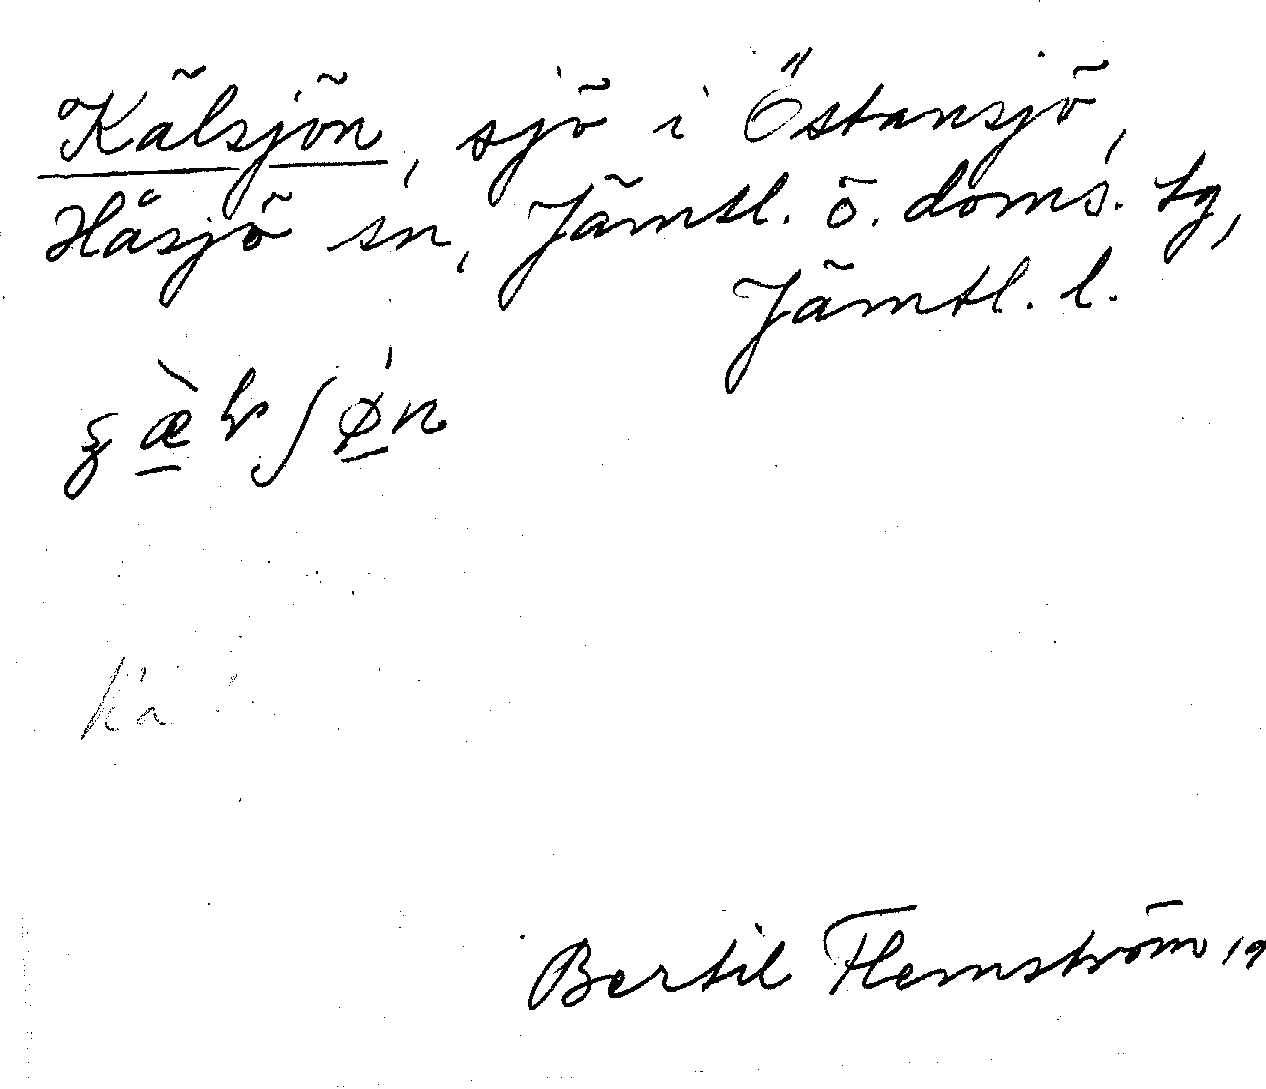 Kälsjön, sjö i Östansjö,
Håsjö sn, Jämtl. ö. doms. tg,
Jämtl. l.
Bertil Flemström 19